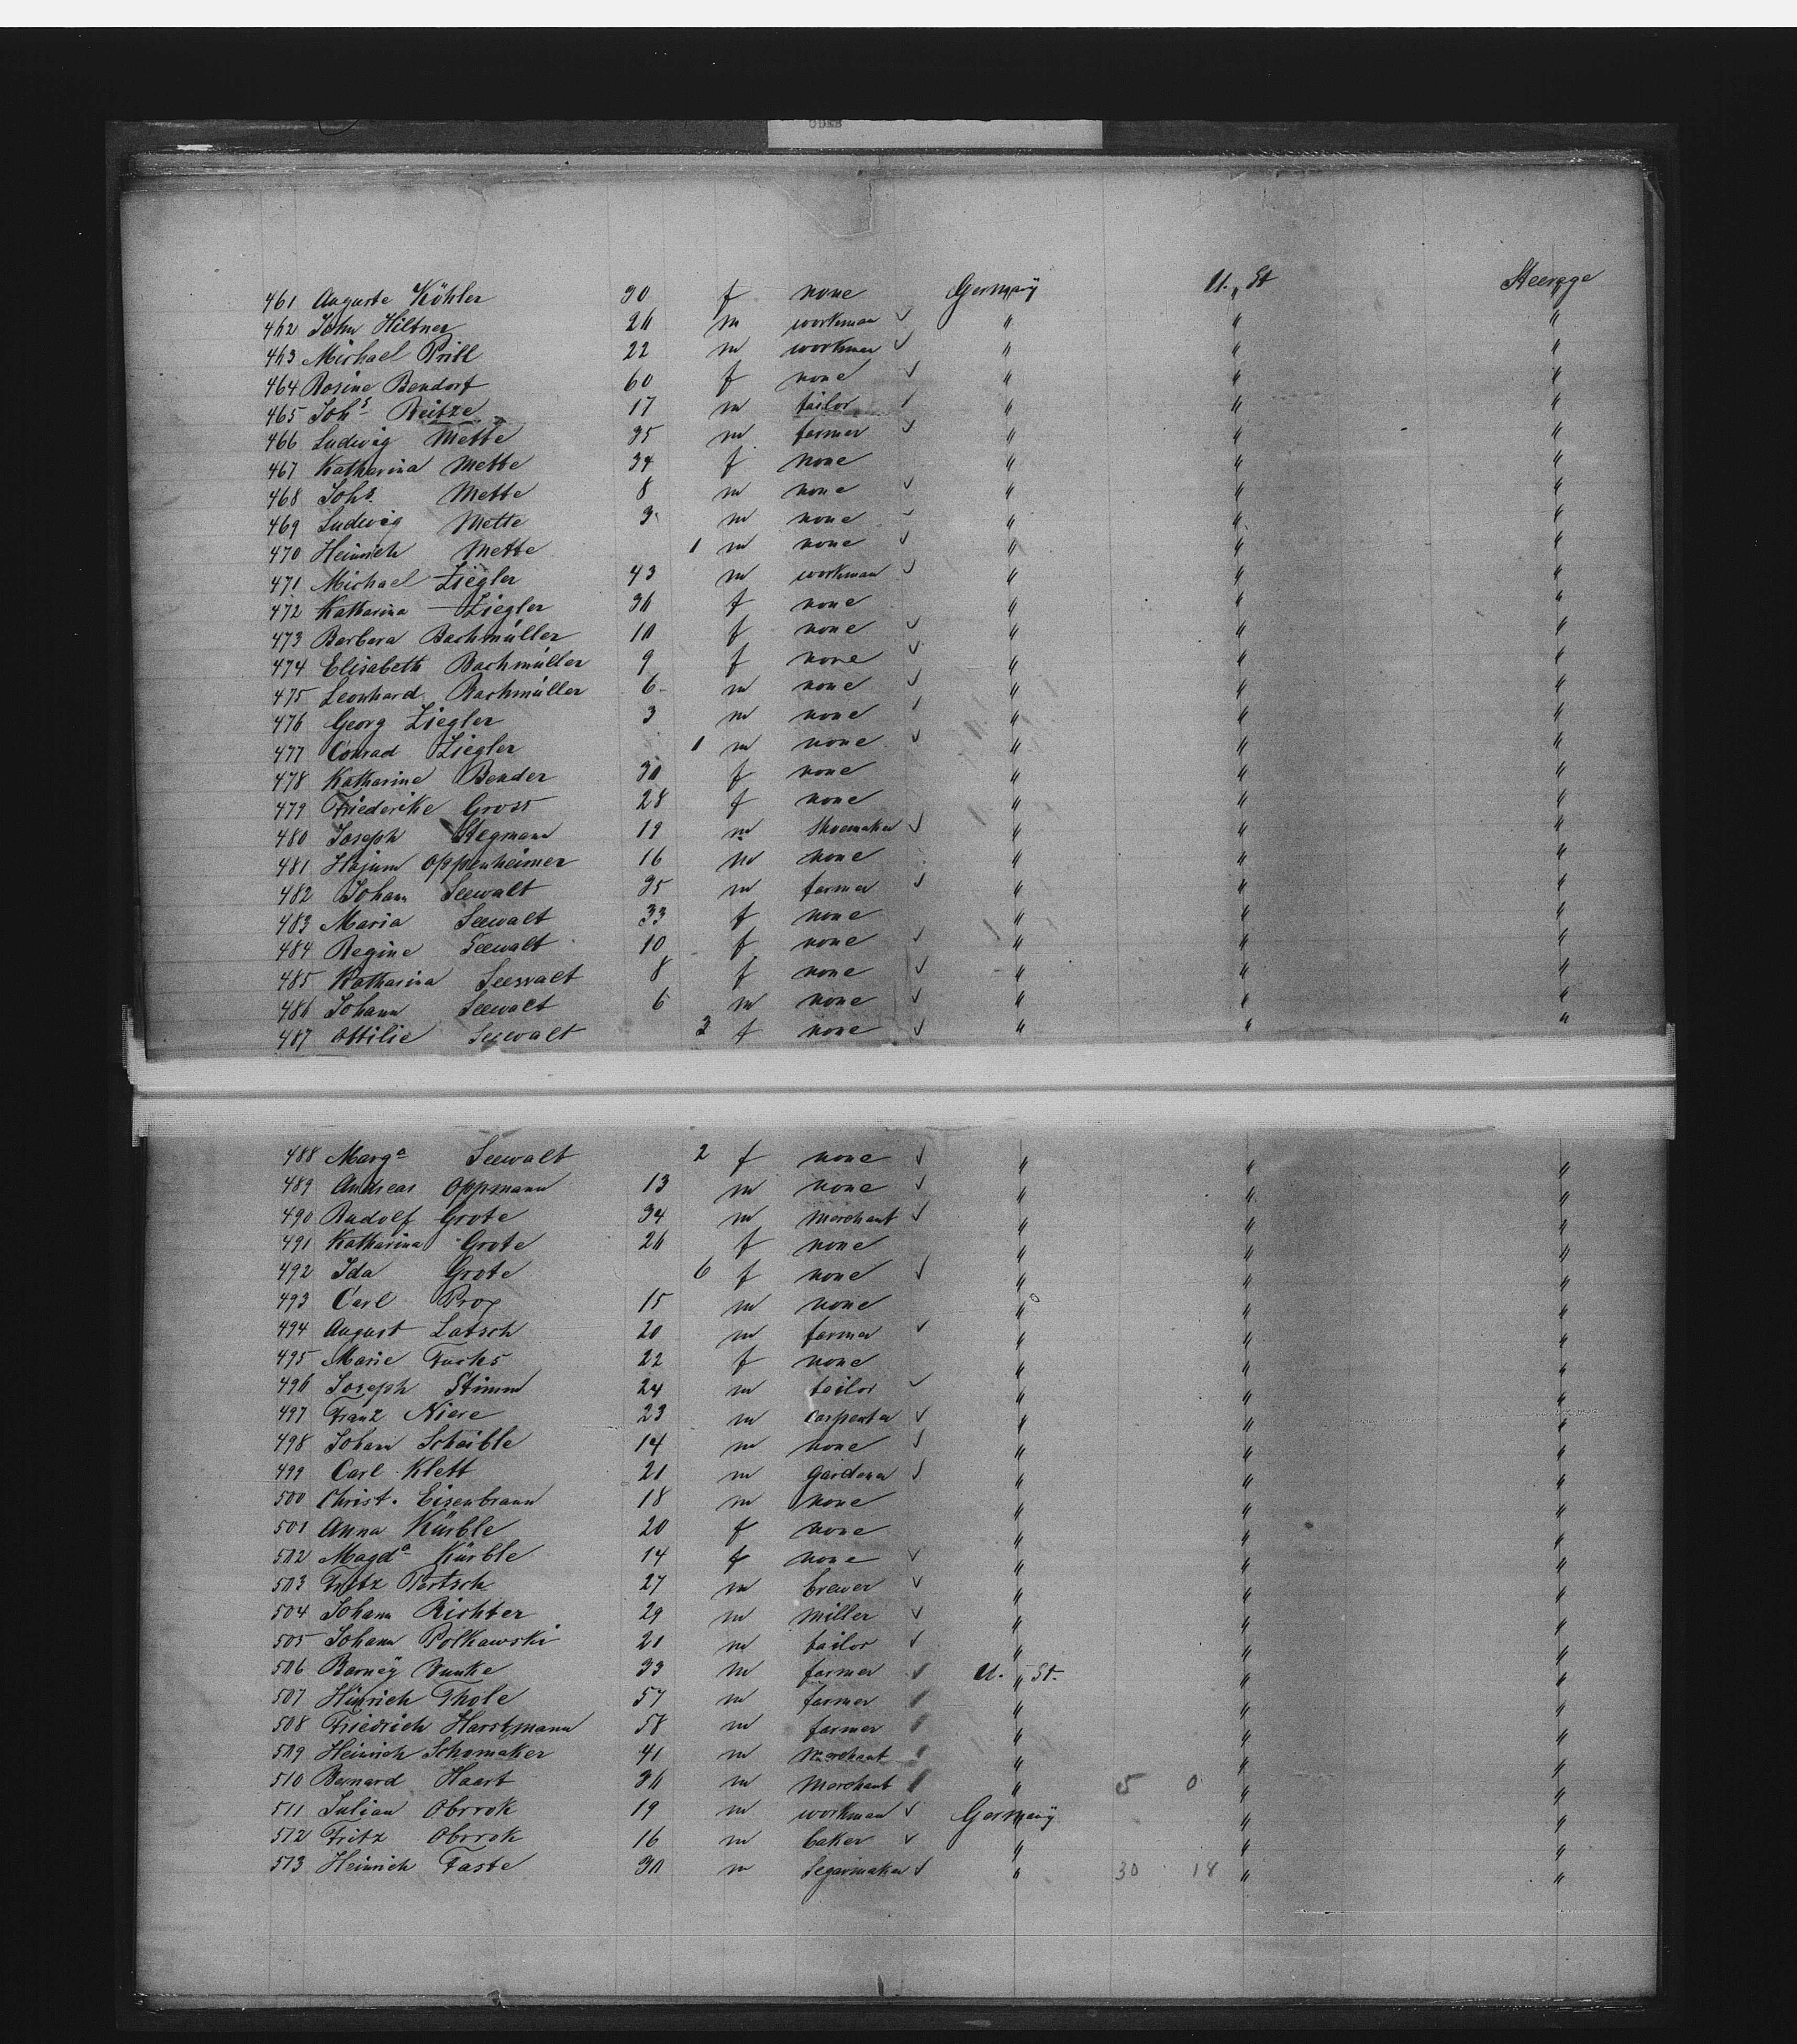 461 Auguste Köhler 30 f none Germany U. St Steerage
462 John Hiltner 26 m workman ✓ " " "
463 Michael Prill 22 m workman ✓ " " "
464 Rosine Bendorf 60 f none ✓ " " "
465 Johs Reitze 17 m tailor " " "
466 Ludwig Mette 35 m farmer ✓ " " "
467 Katharina Mette 34 f none " " "
468 Johs. Mette 8 m none ✓ " " "
469 Ludwig Mette 3 m none " " "
470 Heinrich Mette 1 m none ✓ " " "
471 Michael Ziegler 43 m workman ✓ " " "
472 Katharina Ziegler 36 f none " " "
473 Barbara Bachmüller 10 f none ✓ " " "
474 Elisabeth Bachmüller 9 f none ✓ " " "
475 Leonhard Bachmüller 6 m none ✓ " " "
476 Georg Ziegler 3 m none " " "
477 Conrad Ziegler 1 m none ✓ " " "
478 Katharine Bender 30 f none " " "
479 Friederike Gross 28 f none " " "
480 Joseph Stegmann 19 m Shoemaker ✓ " " "
481 Hajum Oppenheimer 16 m none " " "
482 Johann Seewalt 35 m farmer ✓ " " "
483 Maria Seewalt 33 f none " " "
484 Regine Seewalt 10 f none ✓ " " "
485 Katharina Seewalt 8 f none ✓ " " "
486 Johann Seewalt 6 m none ✓ " " "
487 Ottilie Seewalt 3 f none ✓ " " "
488 Marga Seewalt 2 f none ✓ " " "
489 Andreas Oppmann 13 m none ✓ " " "
490 Rudolf Grote 34 m Merchant ✓ " " "
491 Katharina Grote 26 f none " " "
492 Ida Grote 6 f none ✓ " " "
493 Carl 15 m none " " "
494 August Latsch 20 m farmer ✓ " " "
495 Marie Fuchs 22 f none " " "
496 Joseph Stimm 24 m tailor ✓ " " "
497 Franz Niere 23 m Carpenter ✓ " " "
498 Johann Scheible 14 m none ✓ " " "
499 Carl Klett 21 m Gardener ✓ " " "
500 Christ. Eisenbraun 18 m none " " "
501 Anna Kürble 20 f none " " "
502 Magda Kürble 14 f none ✓ " " "
503 Fritz Pertsch 27 m brewer ✓ " " "
504 Johann Richter 29 m miller ✓ " " "
505 Johann Polkawski 21 m tailor ✓ " " "
506 Barney 33 m farmer ✓ U. St. " "
507 Hinrich Thole 57 m farmer " " "
508 Friedrich Horstmann 58 m farmer " " "
509 Heinrich Schomaker 41 m Merchant " " "
510 Bernard Haart 36 m Merchant " 5 0 " "
511 Julian Obrrok 19 m workman ✓ Germany " "
512 Fritz Obrrok 16 m baker ✓ " " "
513 Heinrich Faste 30 m Segarmaker ✓ " 30 18 " "